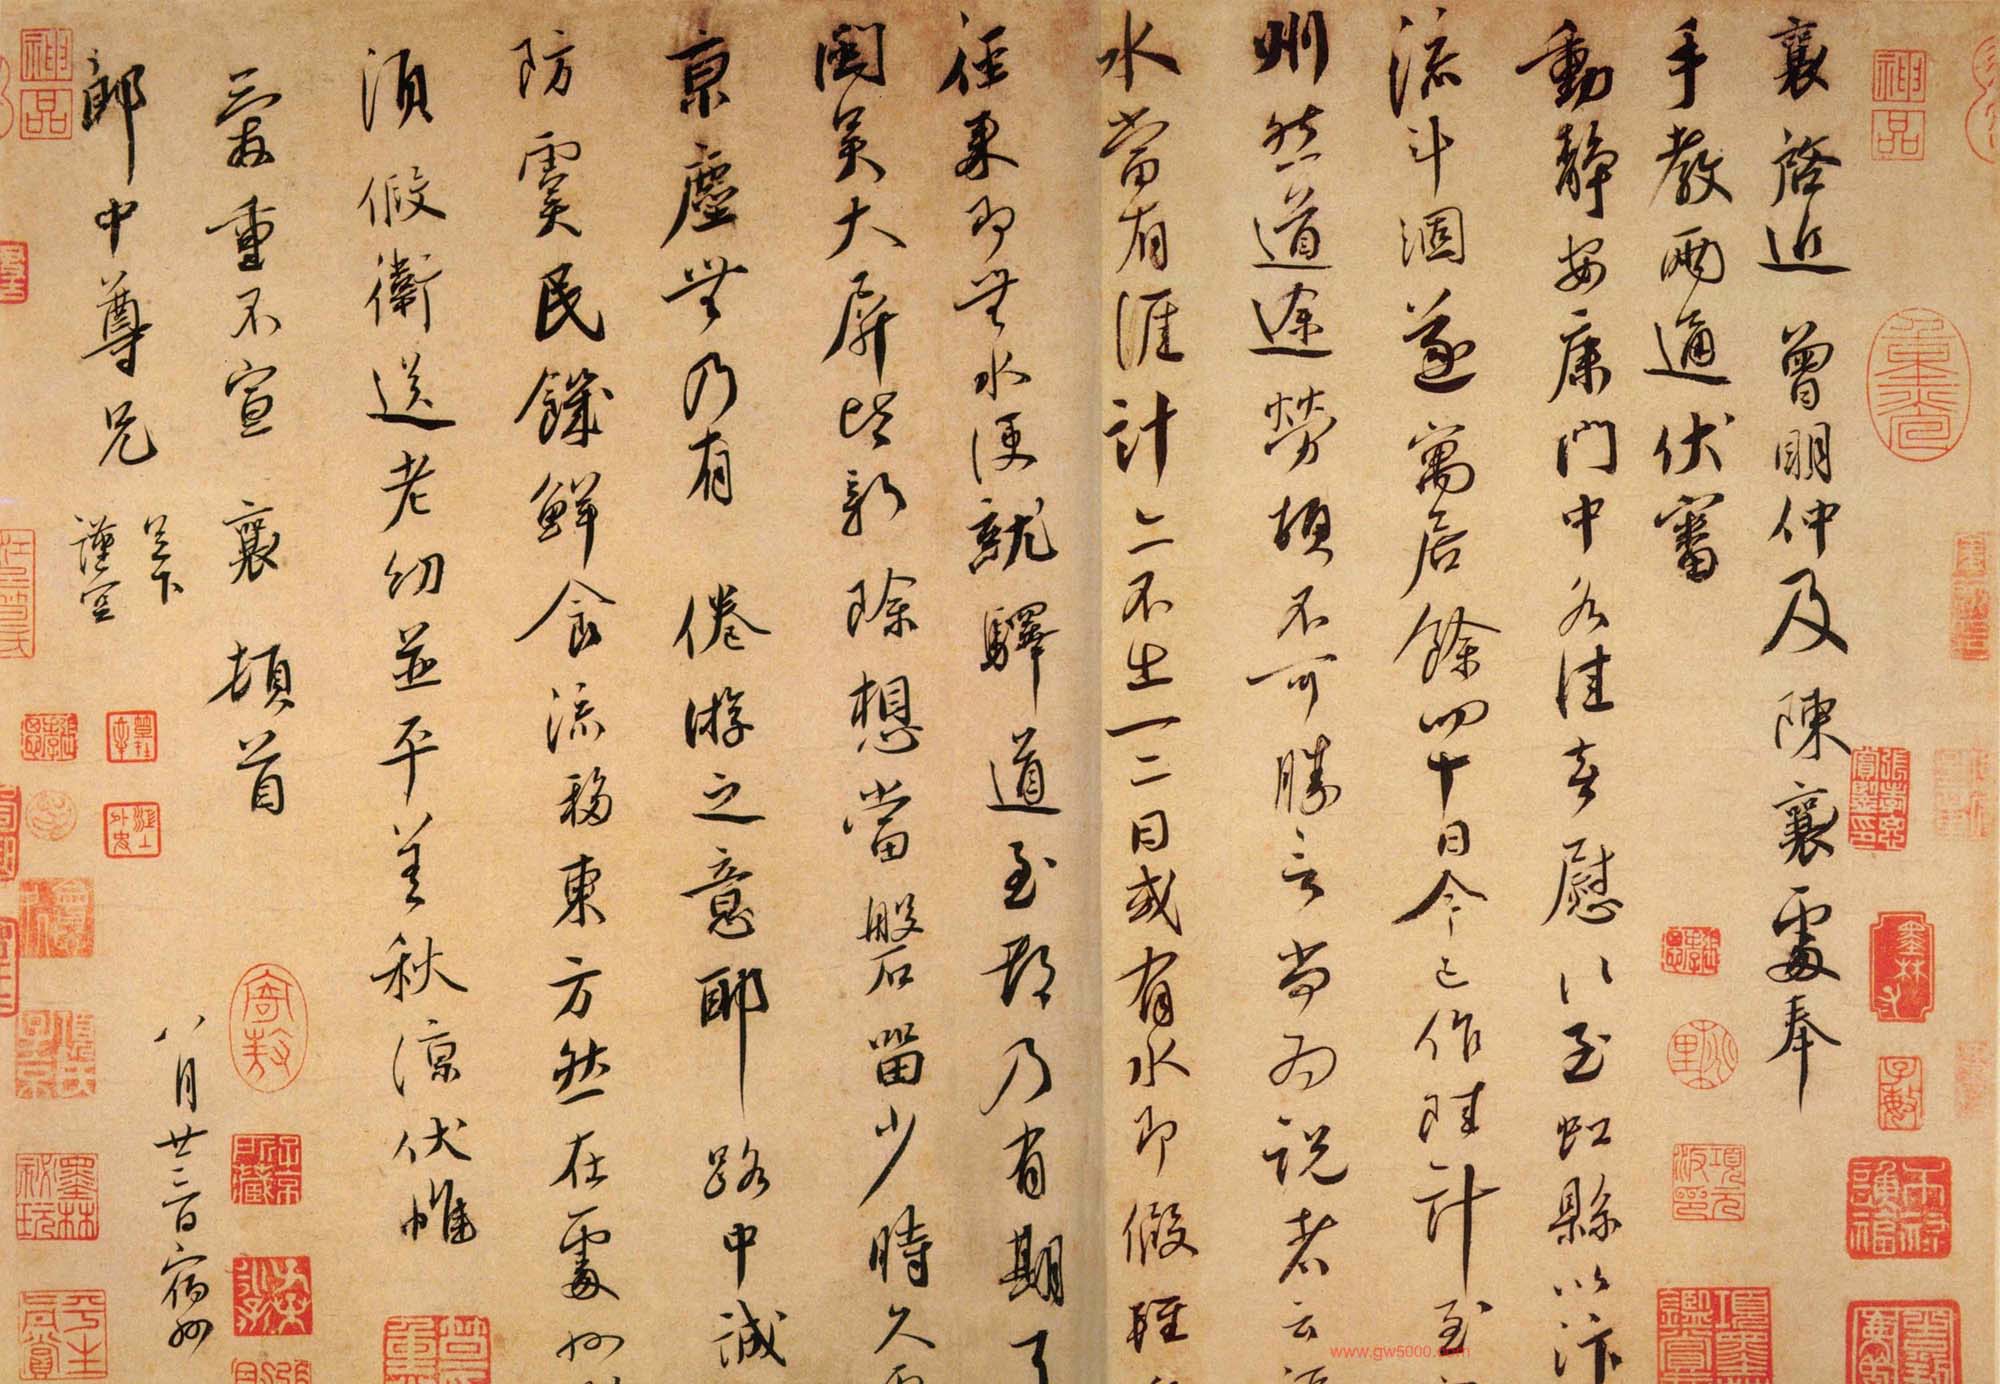 襄啓近 曾明仲及 陳襄處奉
手教兩通伏審
動靜安康門中各佳喜慰以至虹縣以汴
流斗涸遂寓居餘四十日今已作陸計至
州然道途勞頓不可勝言尚爲説者云
水當有涯計亦不出一二日或有水即假
徑來即無水便就驛道至都乃有期
閩吴大屏皆新除想當磐留少時久
京塵無乃有 倦游之意耶路中誠
防虞民饑鮮食流移東方然在處
須假衛送老幼並平善秋涼伏惟
愛重不宣 襄 頓首
郎中尊兄 足下
謹空
八月廿三日宿州
神品
神品
墨林
子敦
項元汴印
墨林祕玩
平生真賞
www.gw5000.com